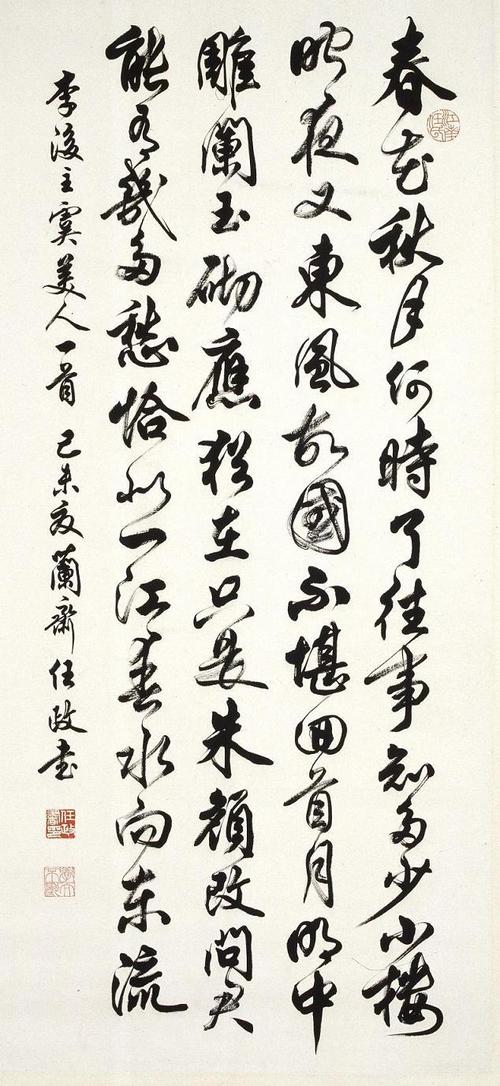 春花秋月何時了往事知多少小樓
昨夜又東風故國不堪回首月明中
雕闌玉砌應猶在只是朱顏改問君
能有幾多愁恰似一江春水向东流
李後主虞美人一首 己未夏蘭齋任政書